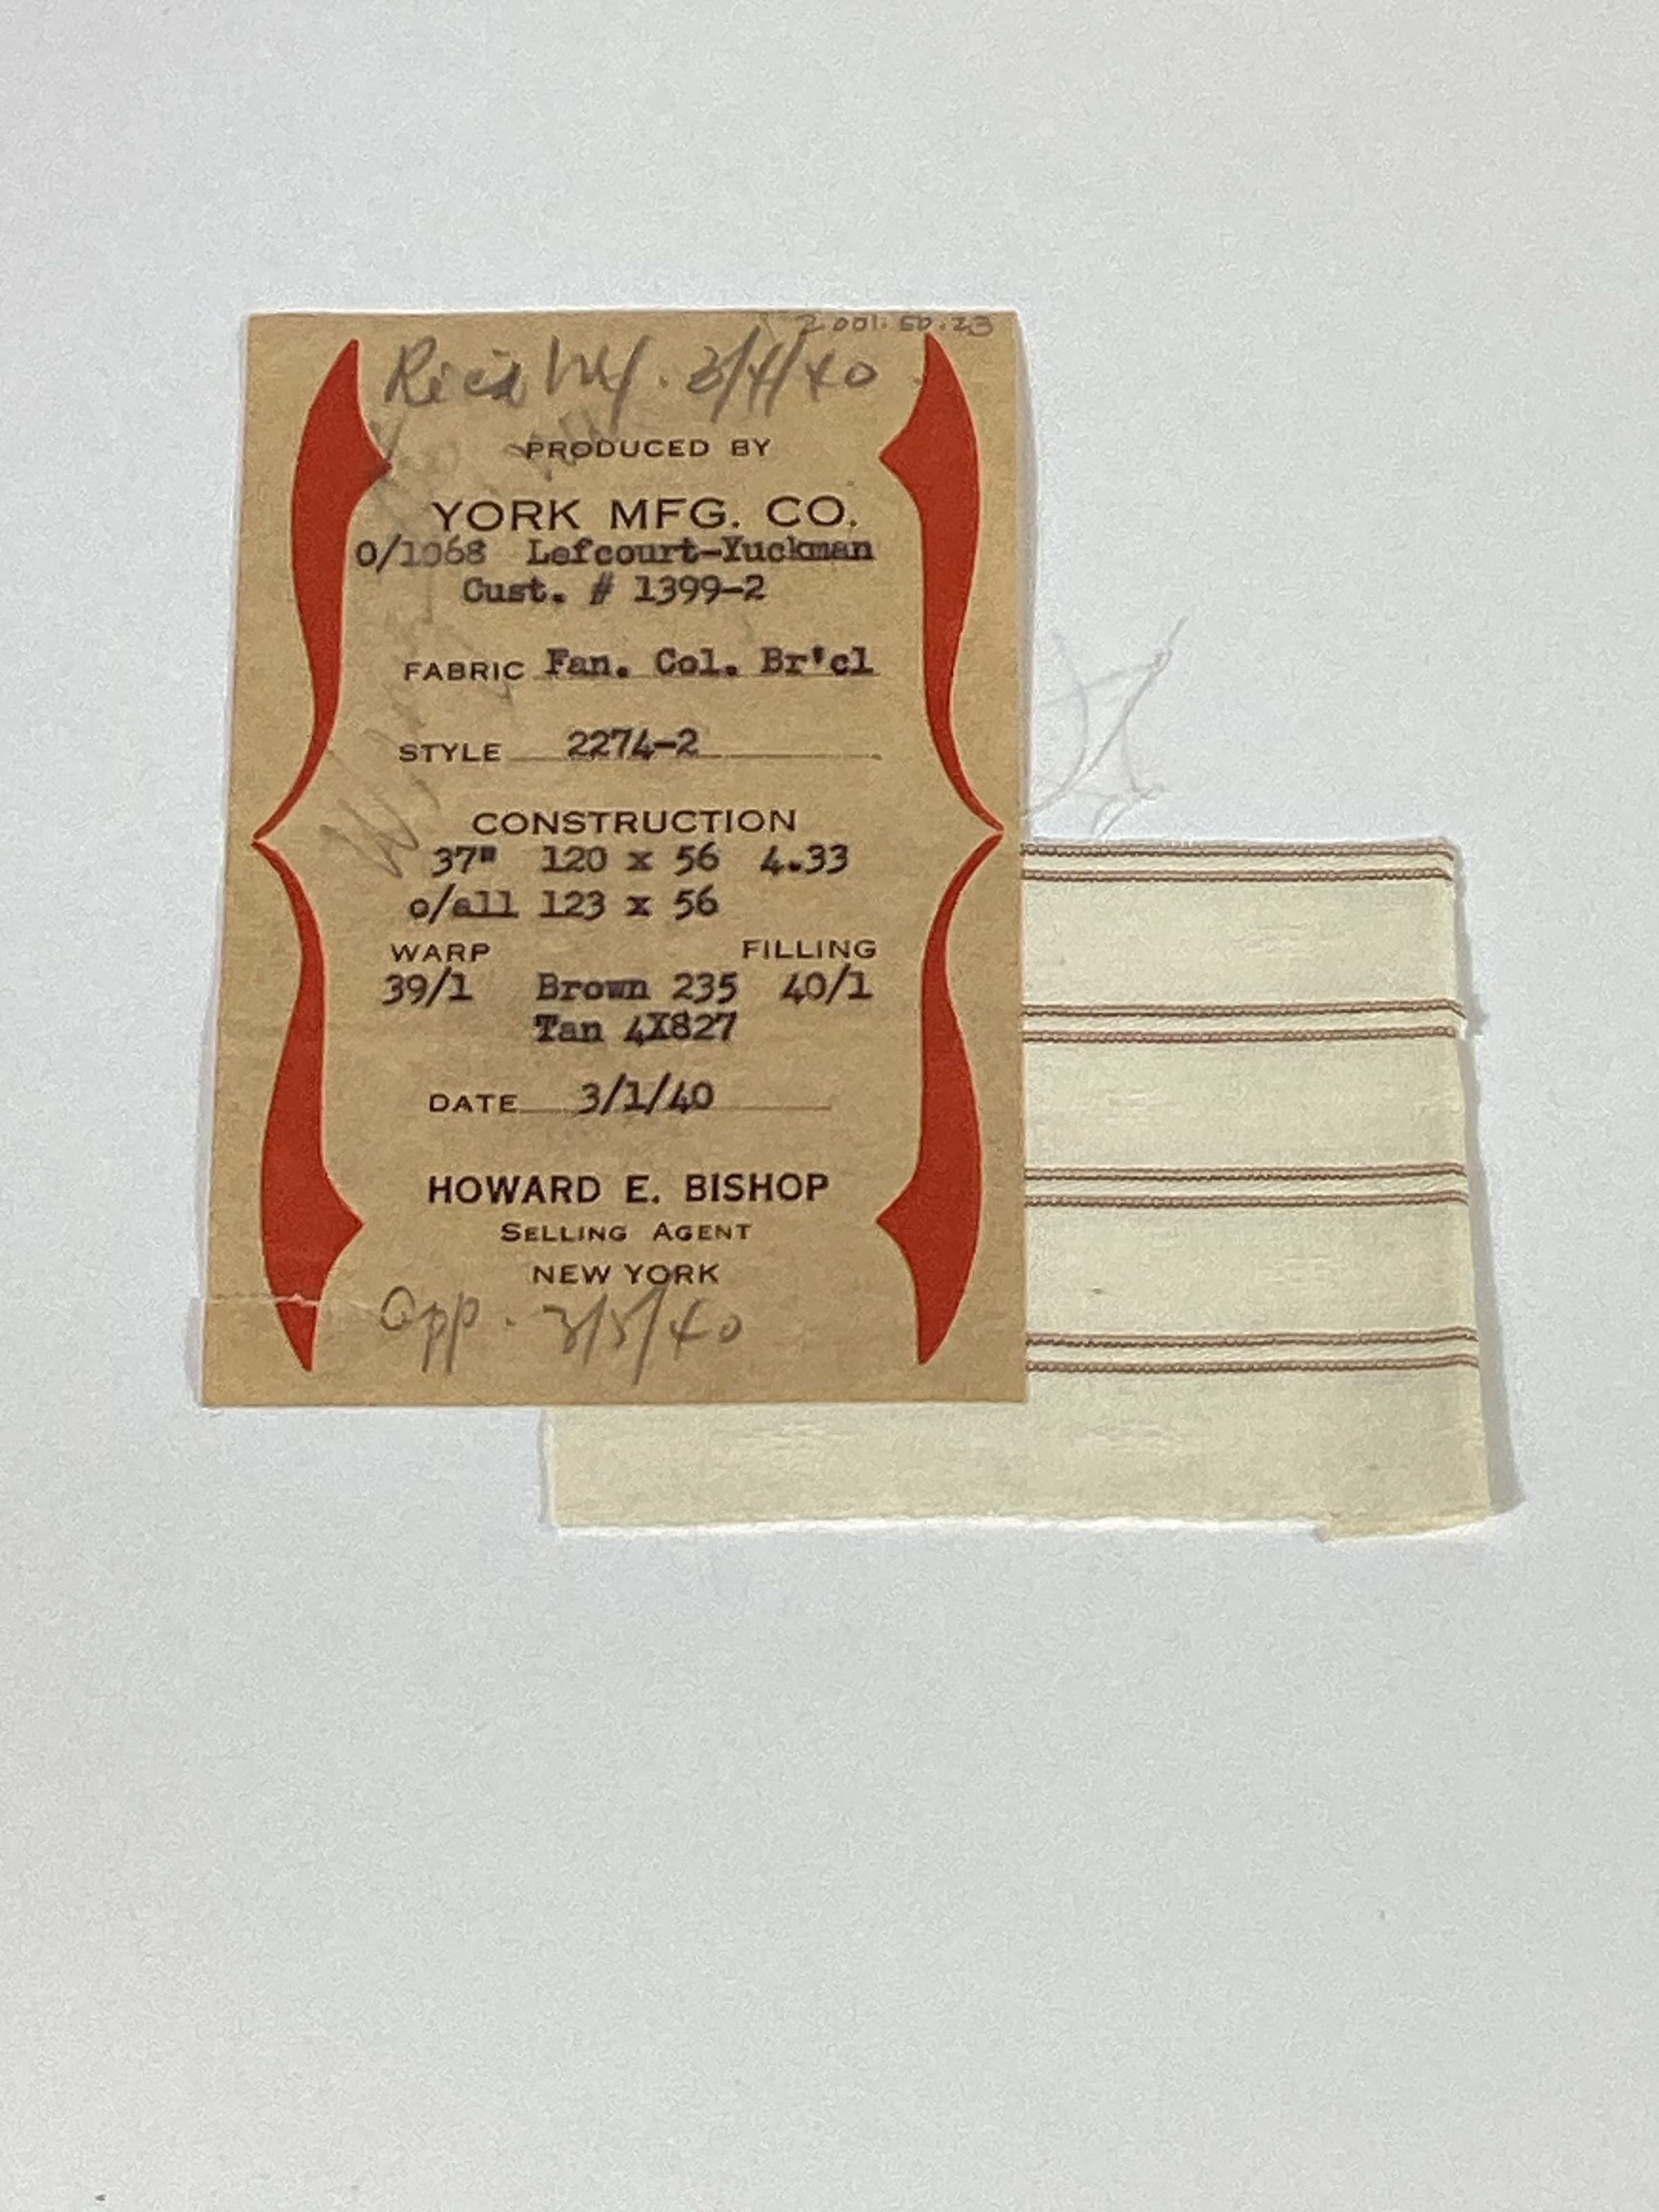 2001.50.23
Rec'd NY. 3/4/40
PRODUCED BY
YORK MFG. CO.
0/1068 Lefcourt-Yuckman
Cust. # 1399-2
FABRIC Fan. Col. Br'cl
STYLE 2274-2
CONSTRUCTION
37" 120 x 56 4.33
o/all 123 x 56
WARP FILLING
39/1 Brown 235 40/1
Tan 4X827
DATE 3/1/40
HOWARD E. BISHOP
SELLING AGENT
NEW YORK
App. 3/5/40